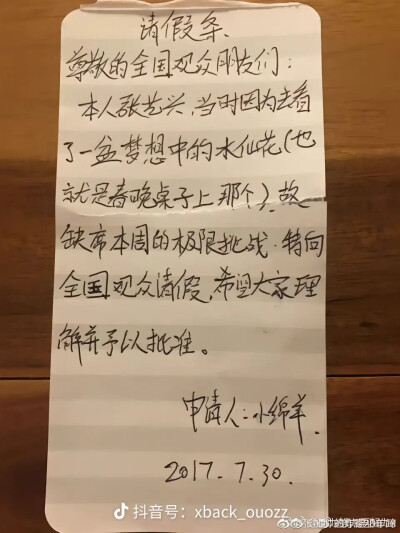 请假条
尊敬的全国观众朋友们：
本人张艺兴，当时因为去看
了一盆梦想中的水仙花（也
就是春晚桌子上那个）。故
缺席本周的极限挑战。特向
全国观众请假，希望大家理
解并予以批准。
申请人：小绵羊.
2017.7.30.
抖音号：xback_ouozz